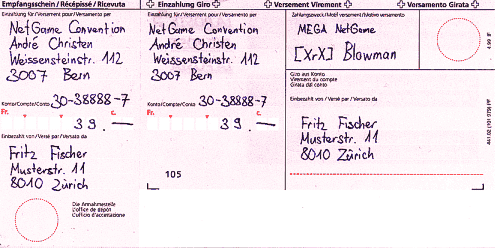 Empfangsschein / Récépissé / Ricevuta
Einzahlung für/Versement pour/Versamento per
NetGame Convention
André Christen
Weissensteinstr. 112
3007 Bern
Konto/Compte/Conto 30-38888-7
Fr. c.
39.—
Einbezahlt von / Versé par / Versato da
Fritz Fischer
Musterstr. 11
8010 Zürich
Die Annahmestelle
L'office de dépôt
L'ufficio d'accettazione
Einzahlung Giro
Einzahlung für/Versement pour/Versamento per
NetGame Convention
André Christen
Weissensteinstr. 112
3007 Bern
Konto/Compte/Conto 30-38888-7
Fr. c.
39.—
105
Versement Virement
Versamento Girata
Zahlungszweck/Motif versement/Motivo versamento
MEGA NetGame
[XrX] Blowman
Giro aus Konto
Virement du compte
Girata dal conto
Einbezahlt von / Versé par / Versato da
Fritz Fischer
Musterstr. 11
8010 Zürich